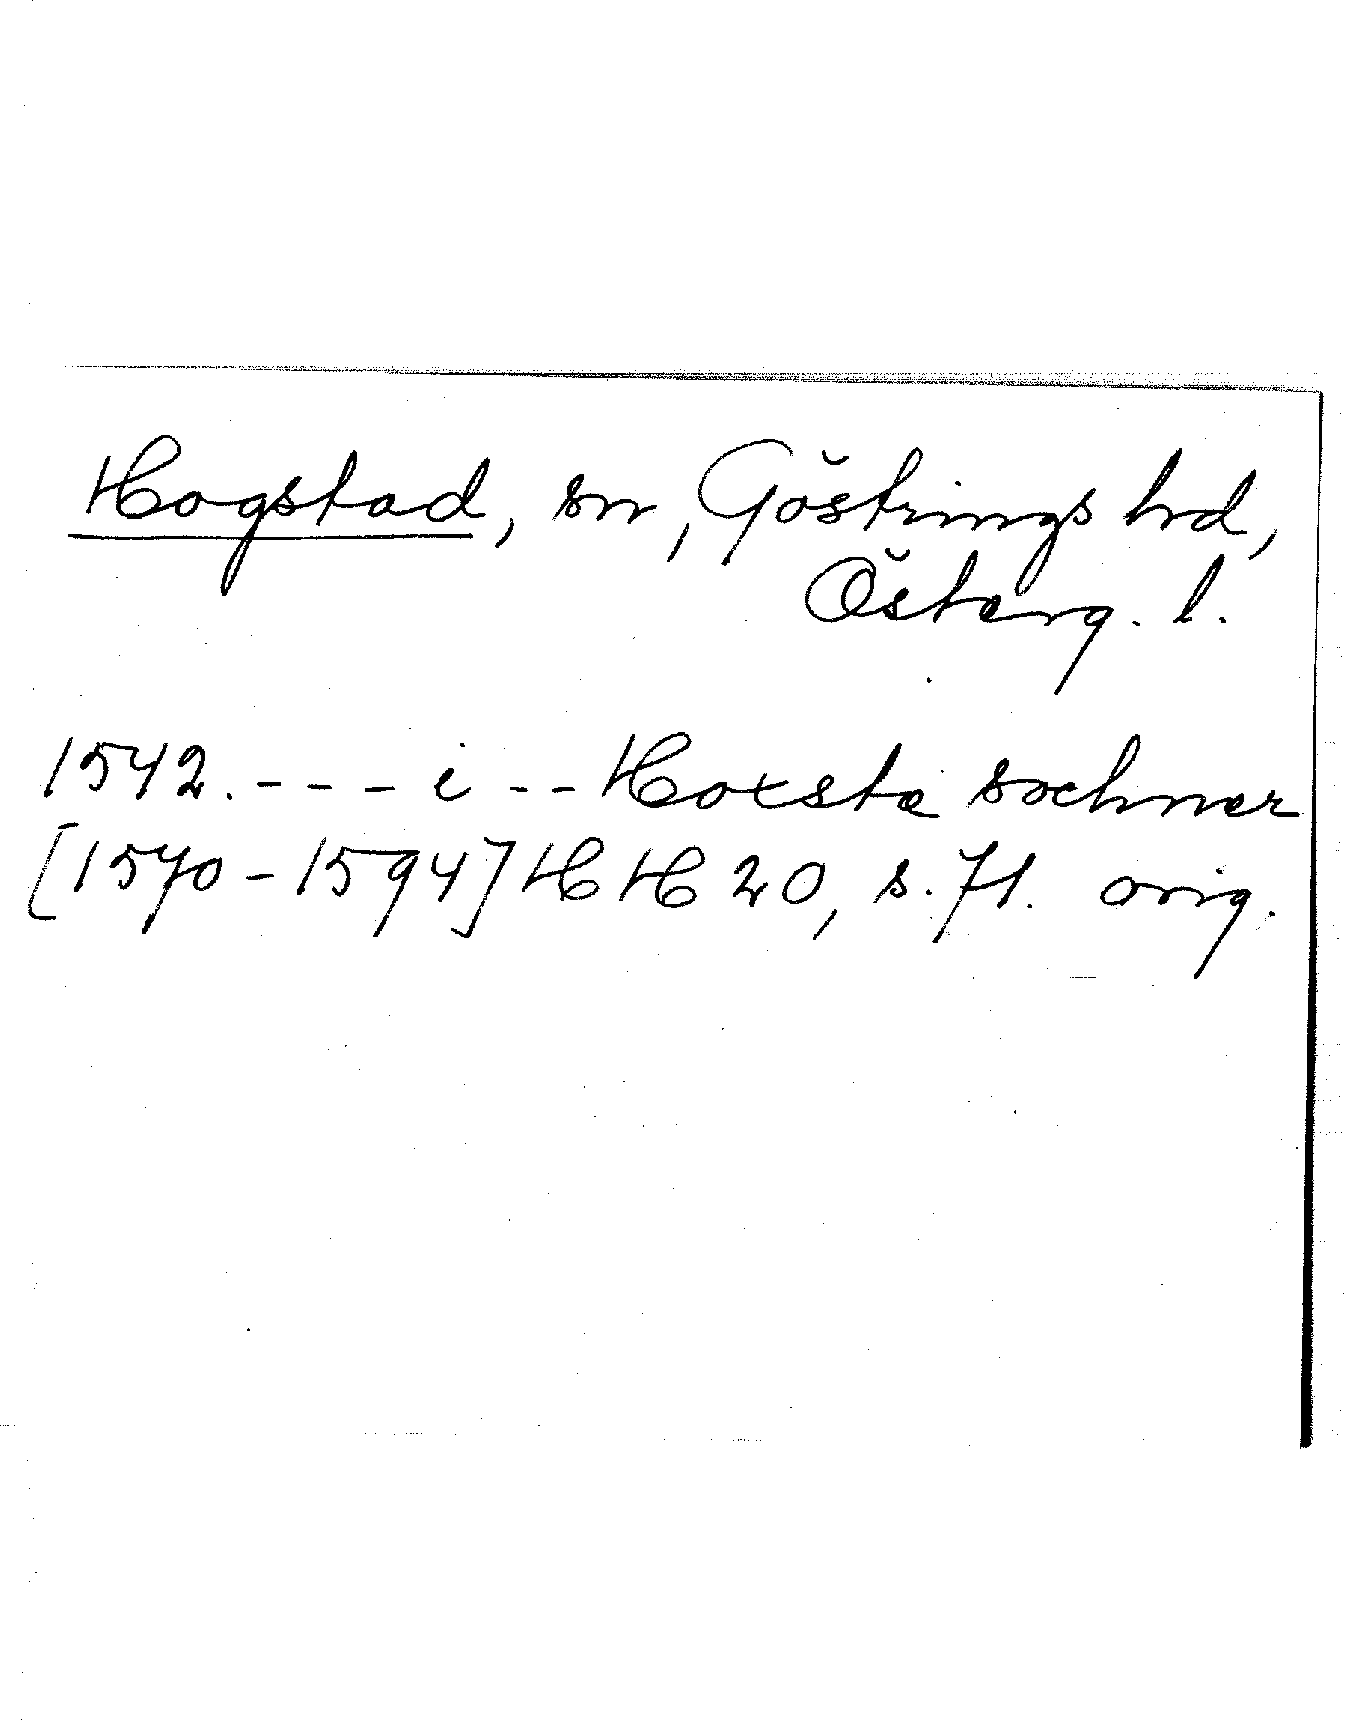 Hogstad, sn, Göstrings hd,
Österg. l.
1542. - - - i - - Hoxsta sochner
[1570-1594] HH 20, s. 71. orig.